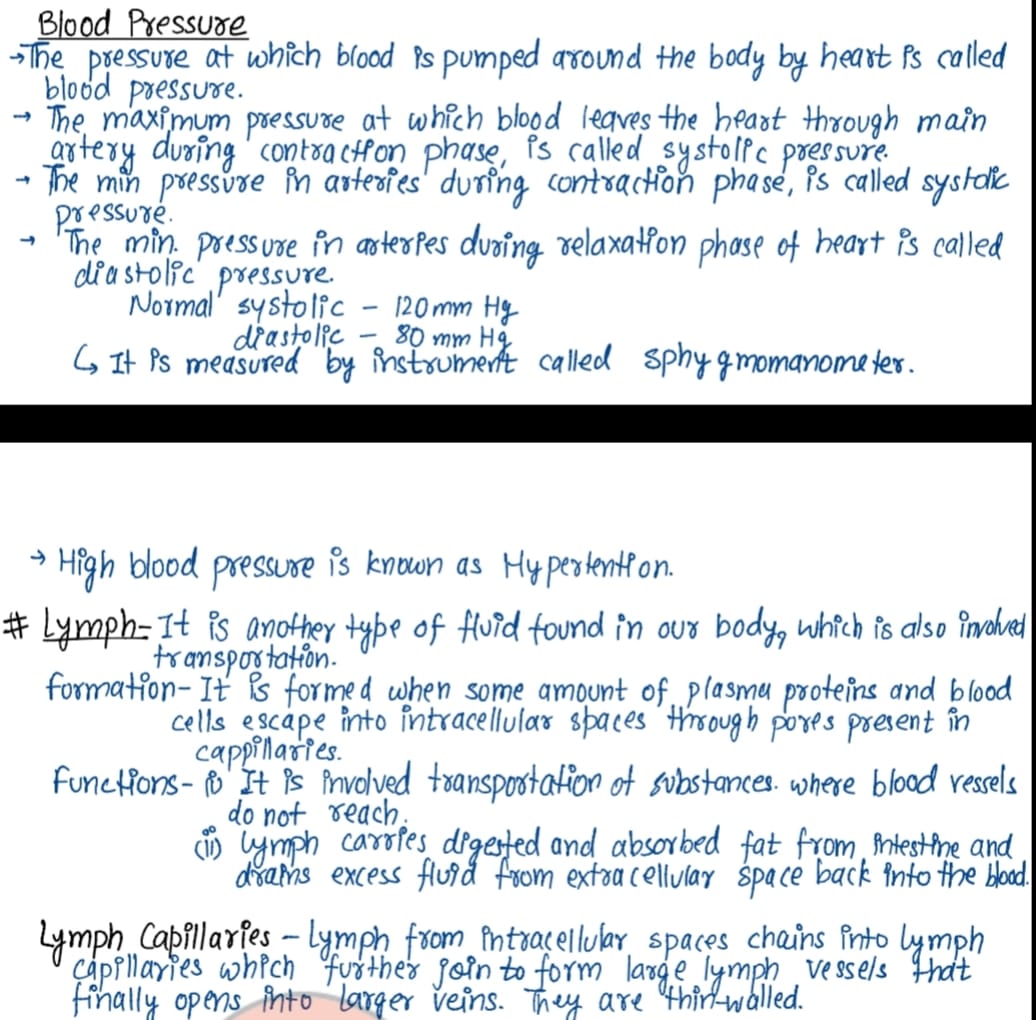 Blood Pressure
→The pressure at which blood is pumped around the body by heart is called
blood pressure.
→ The maximum pressure at which blood leaves the heart through main
artery during contraction phase, is called systolic pressure.
→ The min pressure in arteries during contraction phase, is called systolic
pressure.
→ The min. pressure in arteries during relaxation phase of heart is called
diastolic pressure.
Normal systolic - 120 mm Hg
diastolic - 80 mm Hg
↳ It is measured by instrument called sphygmomanometer.
→ High blood pressure is known as Hypertention.
# Lymph- It is another type of fluid found in our body, which is also involved
transportation.
formation- It is formed when some amount of plasma proteins and blood
cells escape into intracellular spaces through pores present in
cappillaries.
functions- (i) It is involved transportation of substances. where blood vessels
do not reach.
(ii) lymph carries digested and absorbed fat from intestine and
drains excess fluid from extracellular space back into the blood.
Lymph Capillaries - Lymph from intracellular spaces chains into lymph
capillaries which further join to form large lymph vessels that
finally opens into larger veins. They are thin-walled.